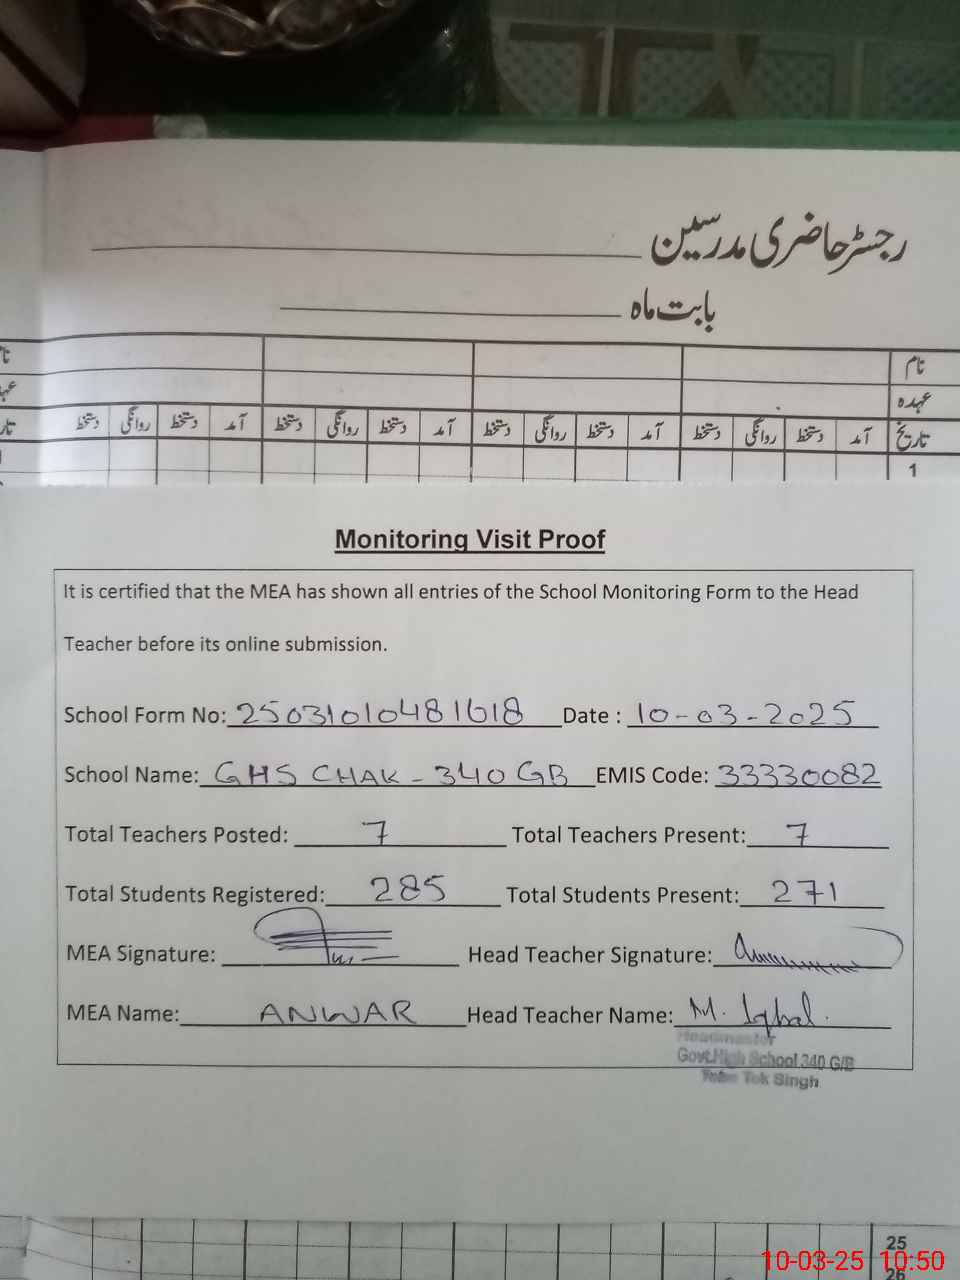 رجسٹر حاضری مدرسین
بابت ماہ
نام
عہدہ
تاریخ آمد دستخط روانگی دستخط آمد دستخط روانگی دستخط آمد دستخط روانگی دستخط آمد دستخط روانگی دستخط
1
Monitoring Visit Proof
It is certified that the MEA has shown all entries of the School Monitoring Form to the Head
Teacher before its online submission.
School Form No: 25031010481618 Date : 10-03-2025
School Name: GHS CHAK-340 GB EMIS Code: 33330082
Total Teachers Posted: 7 Total Teachers Present: 7
Total Students Registered: 285 Total Students Present: 271
MEA Signature: Head Teacher Signature:
MEA Name: ANWAR Head Teacher Name: M. Iqbal.
Headmaster
Govt.High School 340 G/B
Toba Tek Singh
25
26
10-03-25 10:50